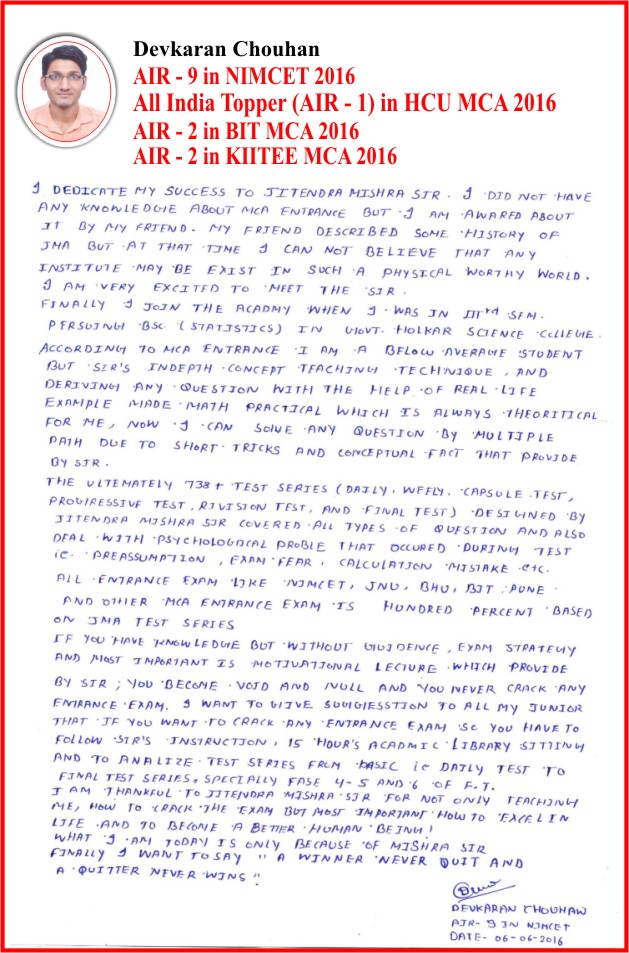 Devkaran Chouhan
AIR - 9 in NIMCET 2016
All India Topper (AIR - 1) in HCU MCA 2016
AIR - 2 in BIT MCA 2016
AIR - 2 in KIITEE MCA 2016
I DEDICATE MY SUCCESS TO JITENDRA MISHRA SIR. I DID NOT HAVE
ANY KNOWLEDGE ABOUT MCA ENTRANCE BUT I AM AWARED ABOUT
IT BY MY FRIEND. MY FRIEND DESCRIBED SOME HISTORY OF
JMA BUT AT THAT TIME I CAN NOT BELIEVE THAT ANY
INSTITUTE MAY BE EXIST IN SUCH A PHYSICAL WORTHY WORLD.
I AM VERY EXCITED TO MEET THE SIR.
FINALLY I JOIN THE ACADMY WHEN I WAS IN IIIrd SEM.
PERSUING BSC (STATISTICS) IN GOVT. HOLKAR SCIENCE COLLEGE.
ACCORDING TO MCA ENTRANCE I AM A BELOW AVERAGE STUDENT
BUT SIR'S INDEPTH CONCEPT TEACHING TECHNIQUE, AND
DERIVING ANY QUESTION WITH THE HELP OF REAL LIFE
EXAMPLE MADE MATH PRACTICAL WHICH IS ALWAYS THEORITICAL
FOR ME, NOW I CAN SOLVE ANY QUESTION BY MULTIPLE
PATH DUE TO SHORT TRICKS AND CONCEPTUAL FACT THAT PROVIDE
BY SIR.
THE ULTEMATELY 738+ TEST SERIES (DAILY, WEFLY, CAPSULE TEST,
PROGRESSIVE TEST, RIVISION TEST, AND FINAL TEST) DESIGNED BY
JITENDRA MISHRA SIR COVERED ALL TYPES OF QUESTION AND ALSO
DEAL WITH PSYCHOLOGICAL PROBLE THAT OCCURED DURING TEST
ie. PREASSUMPTION, EXAM FEAR, CALCULATION MISTAKE etc.
ALL ENTRANCE EXAM LIKE NIMCET, JNU, BHU, BIT, PUNE
AND OTHER MCA ENTRANCE EXAM IS HUNDRED PERCENT BASED
ON JMA TEST SERIES
IF YOU HAVE KNOWLEDGE BUT WITHOUT GUIDENCE, EXAM STRATEGY
AND MOST IMPORTANT IS MOTIVATIONAL LECTURE WHICH PROVIDE
BY SIR; YOU BECOME VOID AND NULL AND YOU NEVER CRACK ANY
ENTRANCE EXAM. I WANT TO GIVE SUGGIESSTION TO ALL MY JUNIOR
THAT IF YOU WANT TO CRACK ANY ENTRANCE EXAM SO YOU HAVE TO
FOLLOW SIR'S INSTRUCTION, 15 HOUR'S ACADMIC LIBRARY SITTING
AND TO ANALIZE TEST SERIES FROM BASIC ie DAILY TEST TO
FINAL TEST SERIES, SPECIALLY FASE 4-5 AND 6 OF F.T.
I AM THANKFUL TO JITENDRA MISHRA SIR FOR NOT ONLY TEACHING
ME, HOW TO CRACK THE EXAM BUT MOST IMPORTANT HOW TO EXCEL IN
LIFE AND TO BECOME A BETTER HUMAN BEING!
WHAT I AM TODAY IS ONLY BECAUSE OF MISHRA SIR
FINALLY I WANT TO SAY " A WINNER NEVER QUIT AND
A QUITTER NEVER WINS"
DEVKARAN CHOUHAN
AIR- 9 IN NIMCET
DATE- 06-06-2016